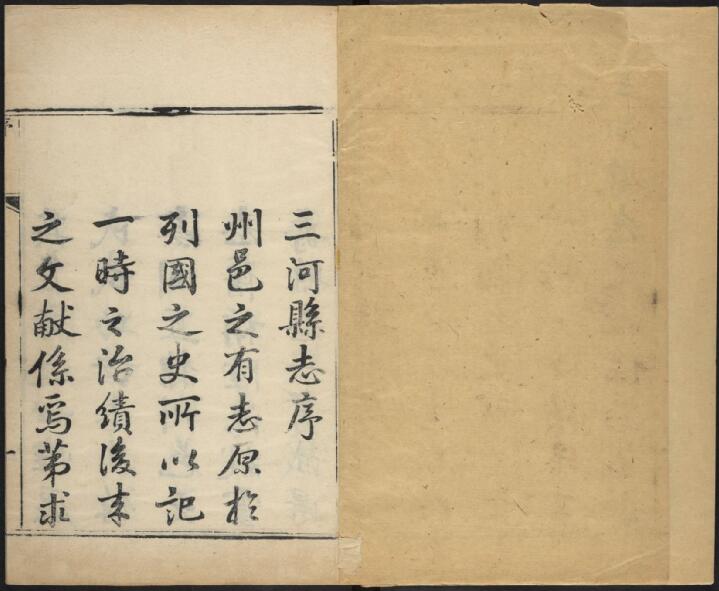 三河縣志序
州邑之有志原於
列國之史所以記
一時之治績後来
之文献係焉第求